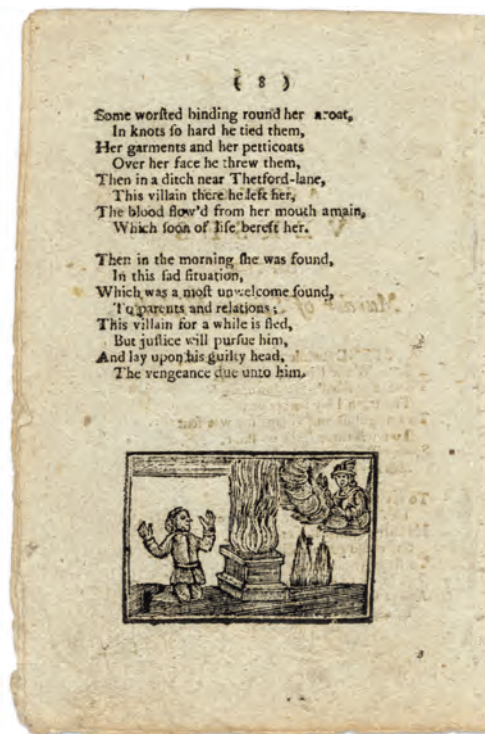 ( 8 )
Some worſted binding round her aroat,
In knots ſo hard he tied them,
Her garments and her petticoats
Over her face he threw them,
Then in a ditch near Thetford-lane,
This villain there he left her,
The blood flow'd from her mouth amain,
Which ſoon of life bereft her.
Then in the morning ſhe was found,
In this ſad ſituation,
Which was a moſt unwelcome ſound,
To parents and relations;
This villain for a while is fled,
But juſtice will purſue him,
And lay upon his guilty head,
The vengeance due unto him.